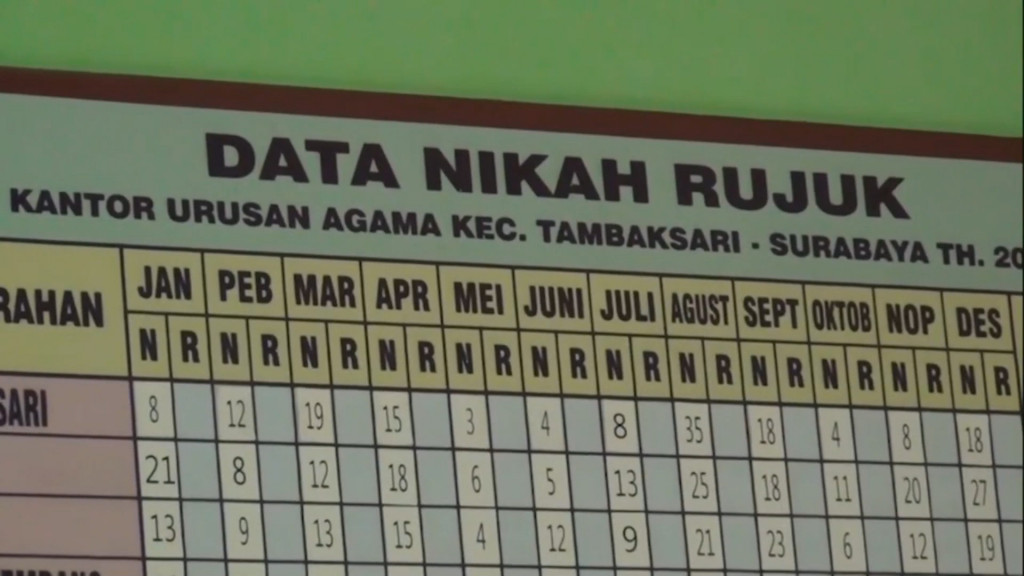 DATA NIKAH RUJUK
KANTOR URUSAN AGAMA KEC. TAMBAKSARI - SURABAYA TH. 20
RAHAN JAN PEB MAR APR MEI JUNI JULI AGUST SEPT OKTOB NOP DES
N R N R N R N R N R N R N R N R N R N R N R N R
SARI 8 12 19 15 3 4 8 35 18 4 8 18
21 8 12 18 6 5 13 25 18 11 20 27
13 9 13 15 4 12 9 21 23 6 12 19